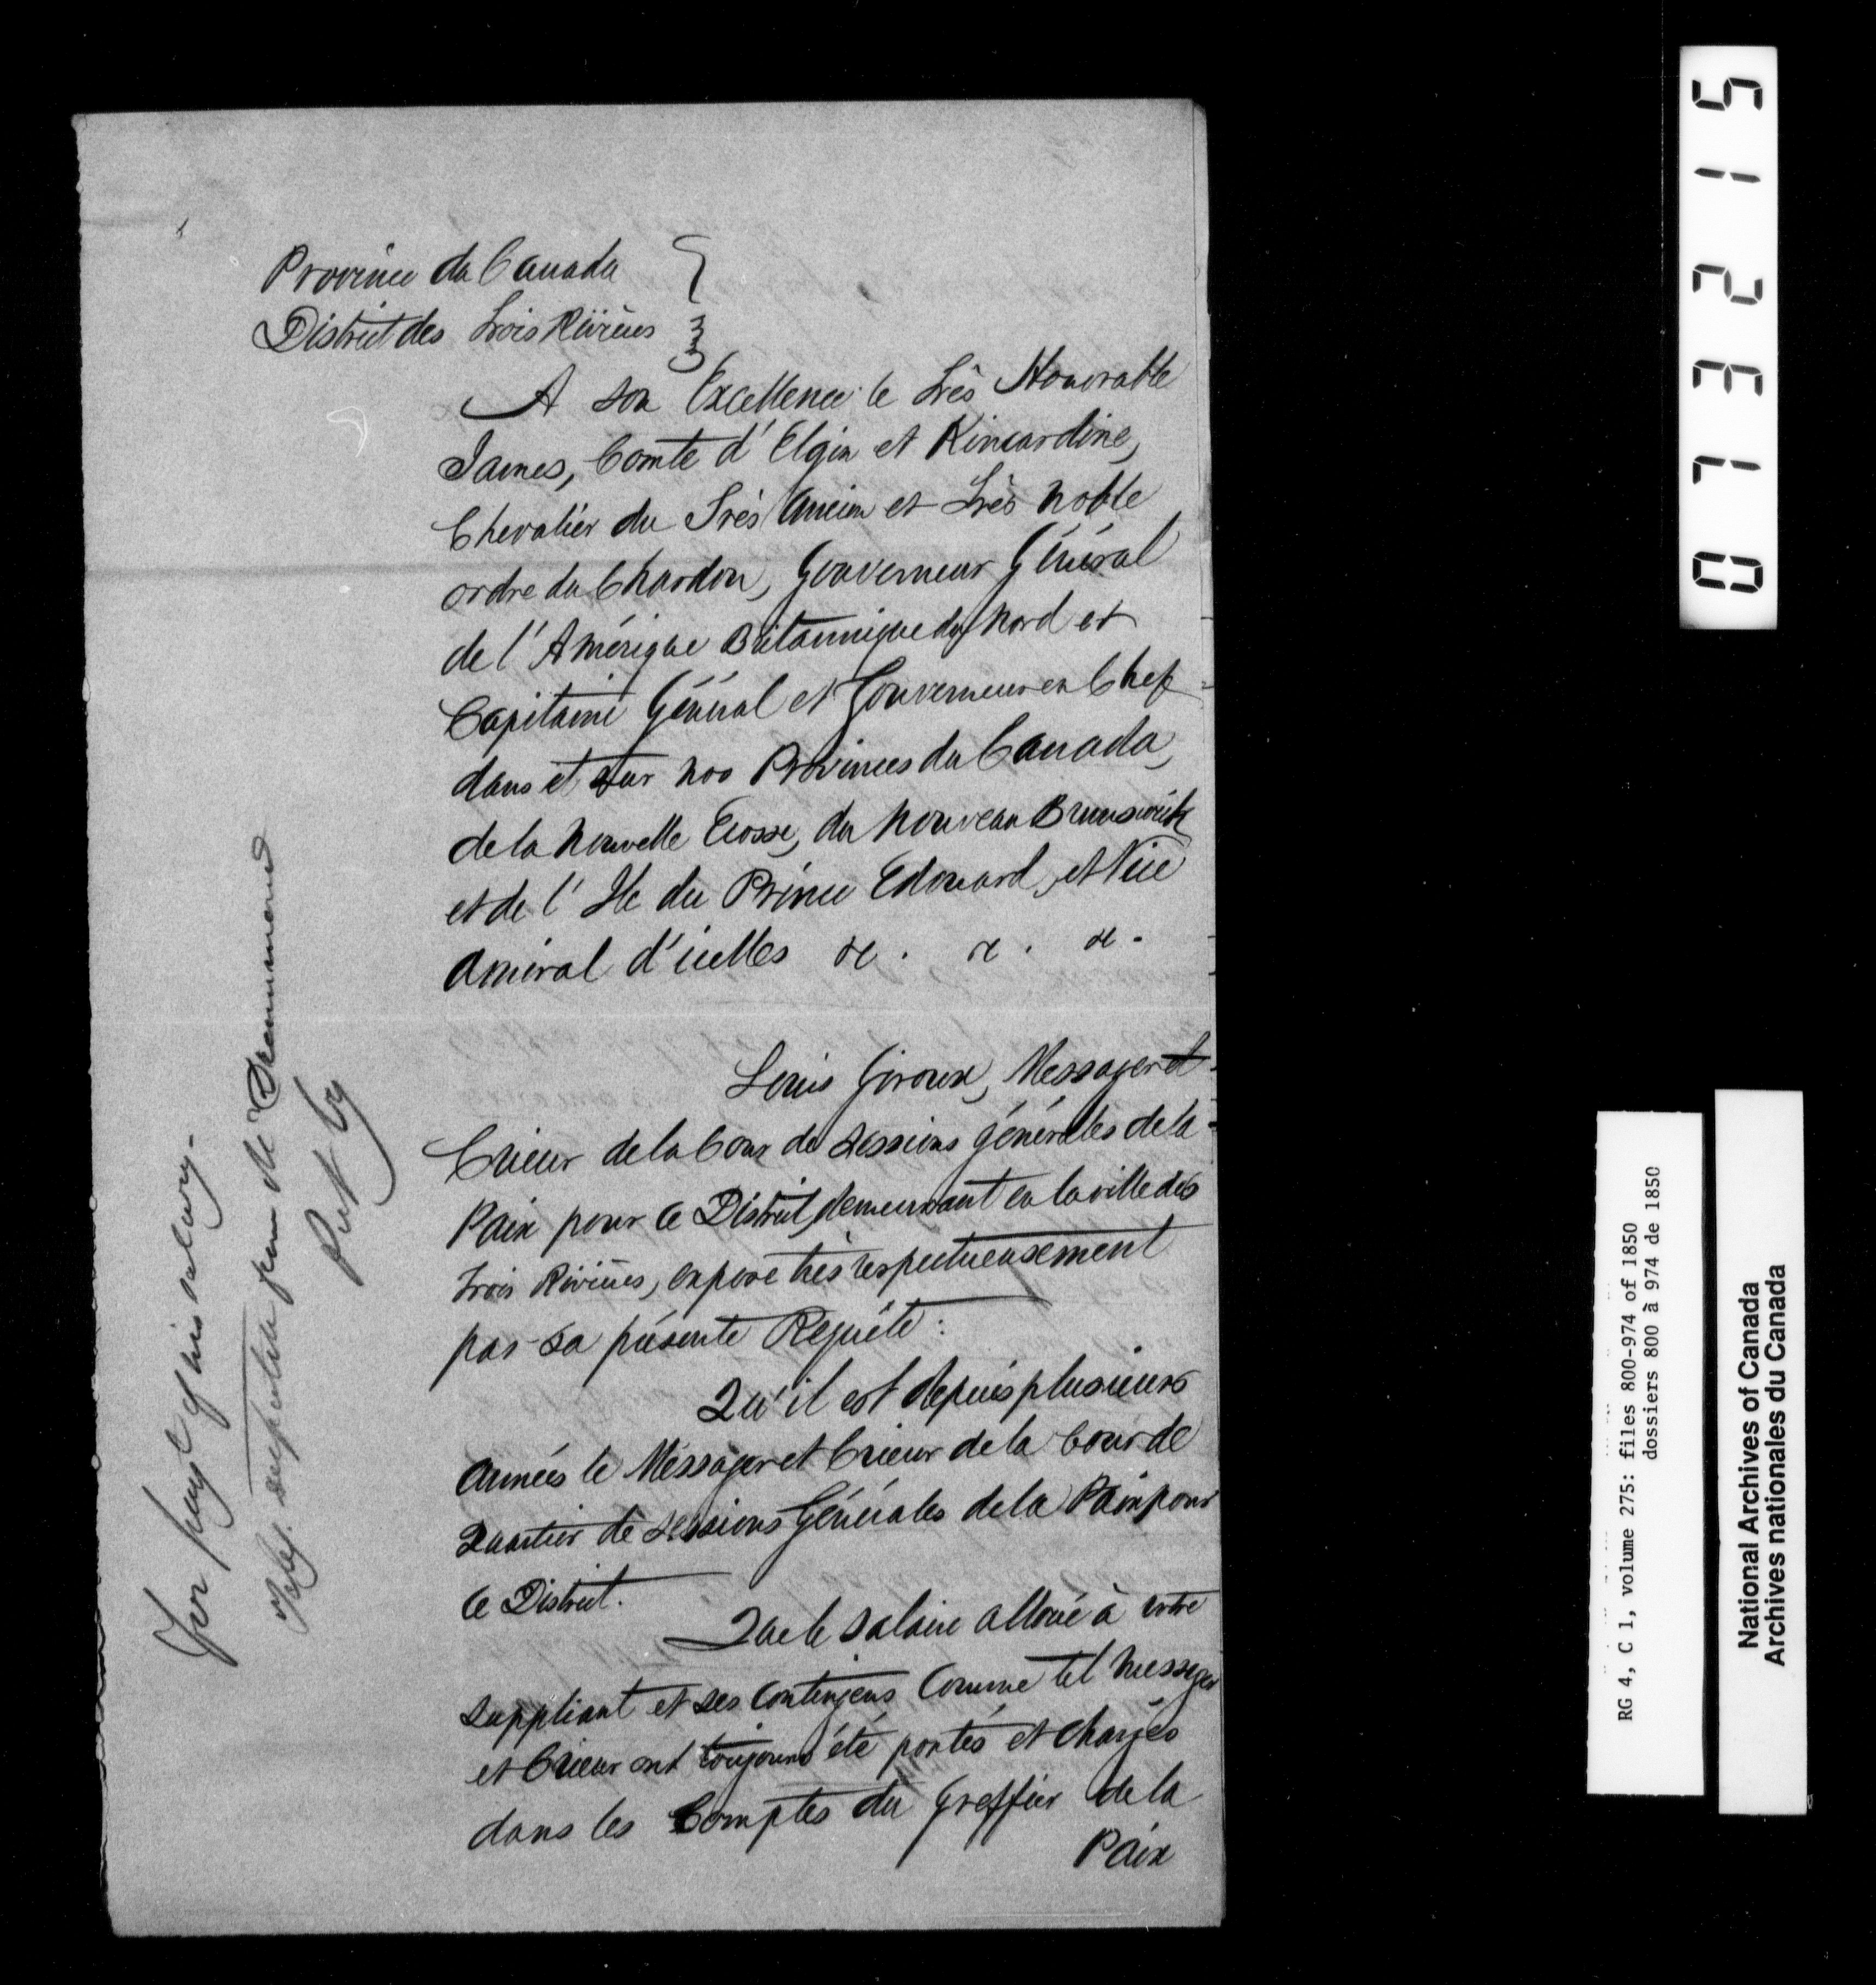 Province du Canada
District des Trois Rivières
A son Excellence le Très Honorable
James, Comte d'Elgin et Kincardine,
Chevalier du Très Ancien et Très noble
ordre du Chardon, Gouverneur Général
de l'Amérique Britannique du Nord et
Capitaine Général et Gouverneur en Chef
dans et sur nos Provinces du Canada,
de la Nouvelle Ecosse, du Nouveau Brunswick
et de l'Ile du Prince Edouard, et Vice
Amiral d'icelles &. &. &.
Louis Giroux, Messager et
Crieur de la Cour de Sessions générales de la
Paix pour ce District, demeurant en la ville des
Trois Rivières, expose très respectueusement
par sa présente Requête :
Qu'il est depuis plusieurs
années le Messager et Crieur de la Cour de
Quartier de Sessions Générales de la Paix pour
ce District.
Que le salaire alloué à votre
suppliant et ses Contingens Comme tel messager
et Crieur ont toujours été portés et chargés
dans les Comptes du Greffier de la
Paix
For payt of his salary -
from Mr Drummond
Put by
0 7 3 2 1 5
RG 4, C 1, volume 275: files 800-974 of 1850
dossiers 800 à 974 de 1850
National Archives of Canada
Archives nationales du Canada